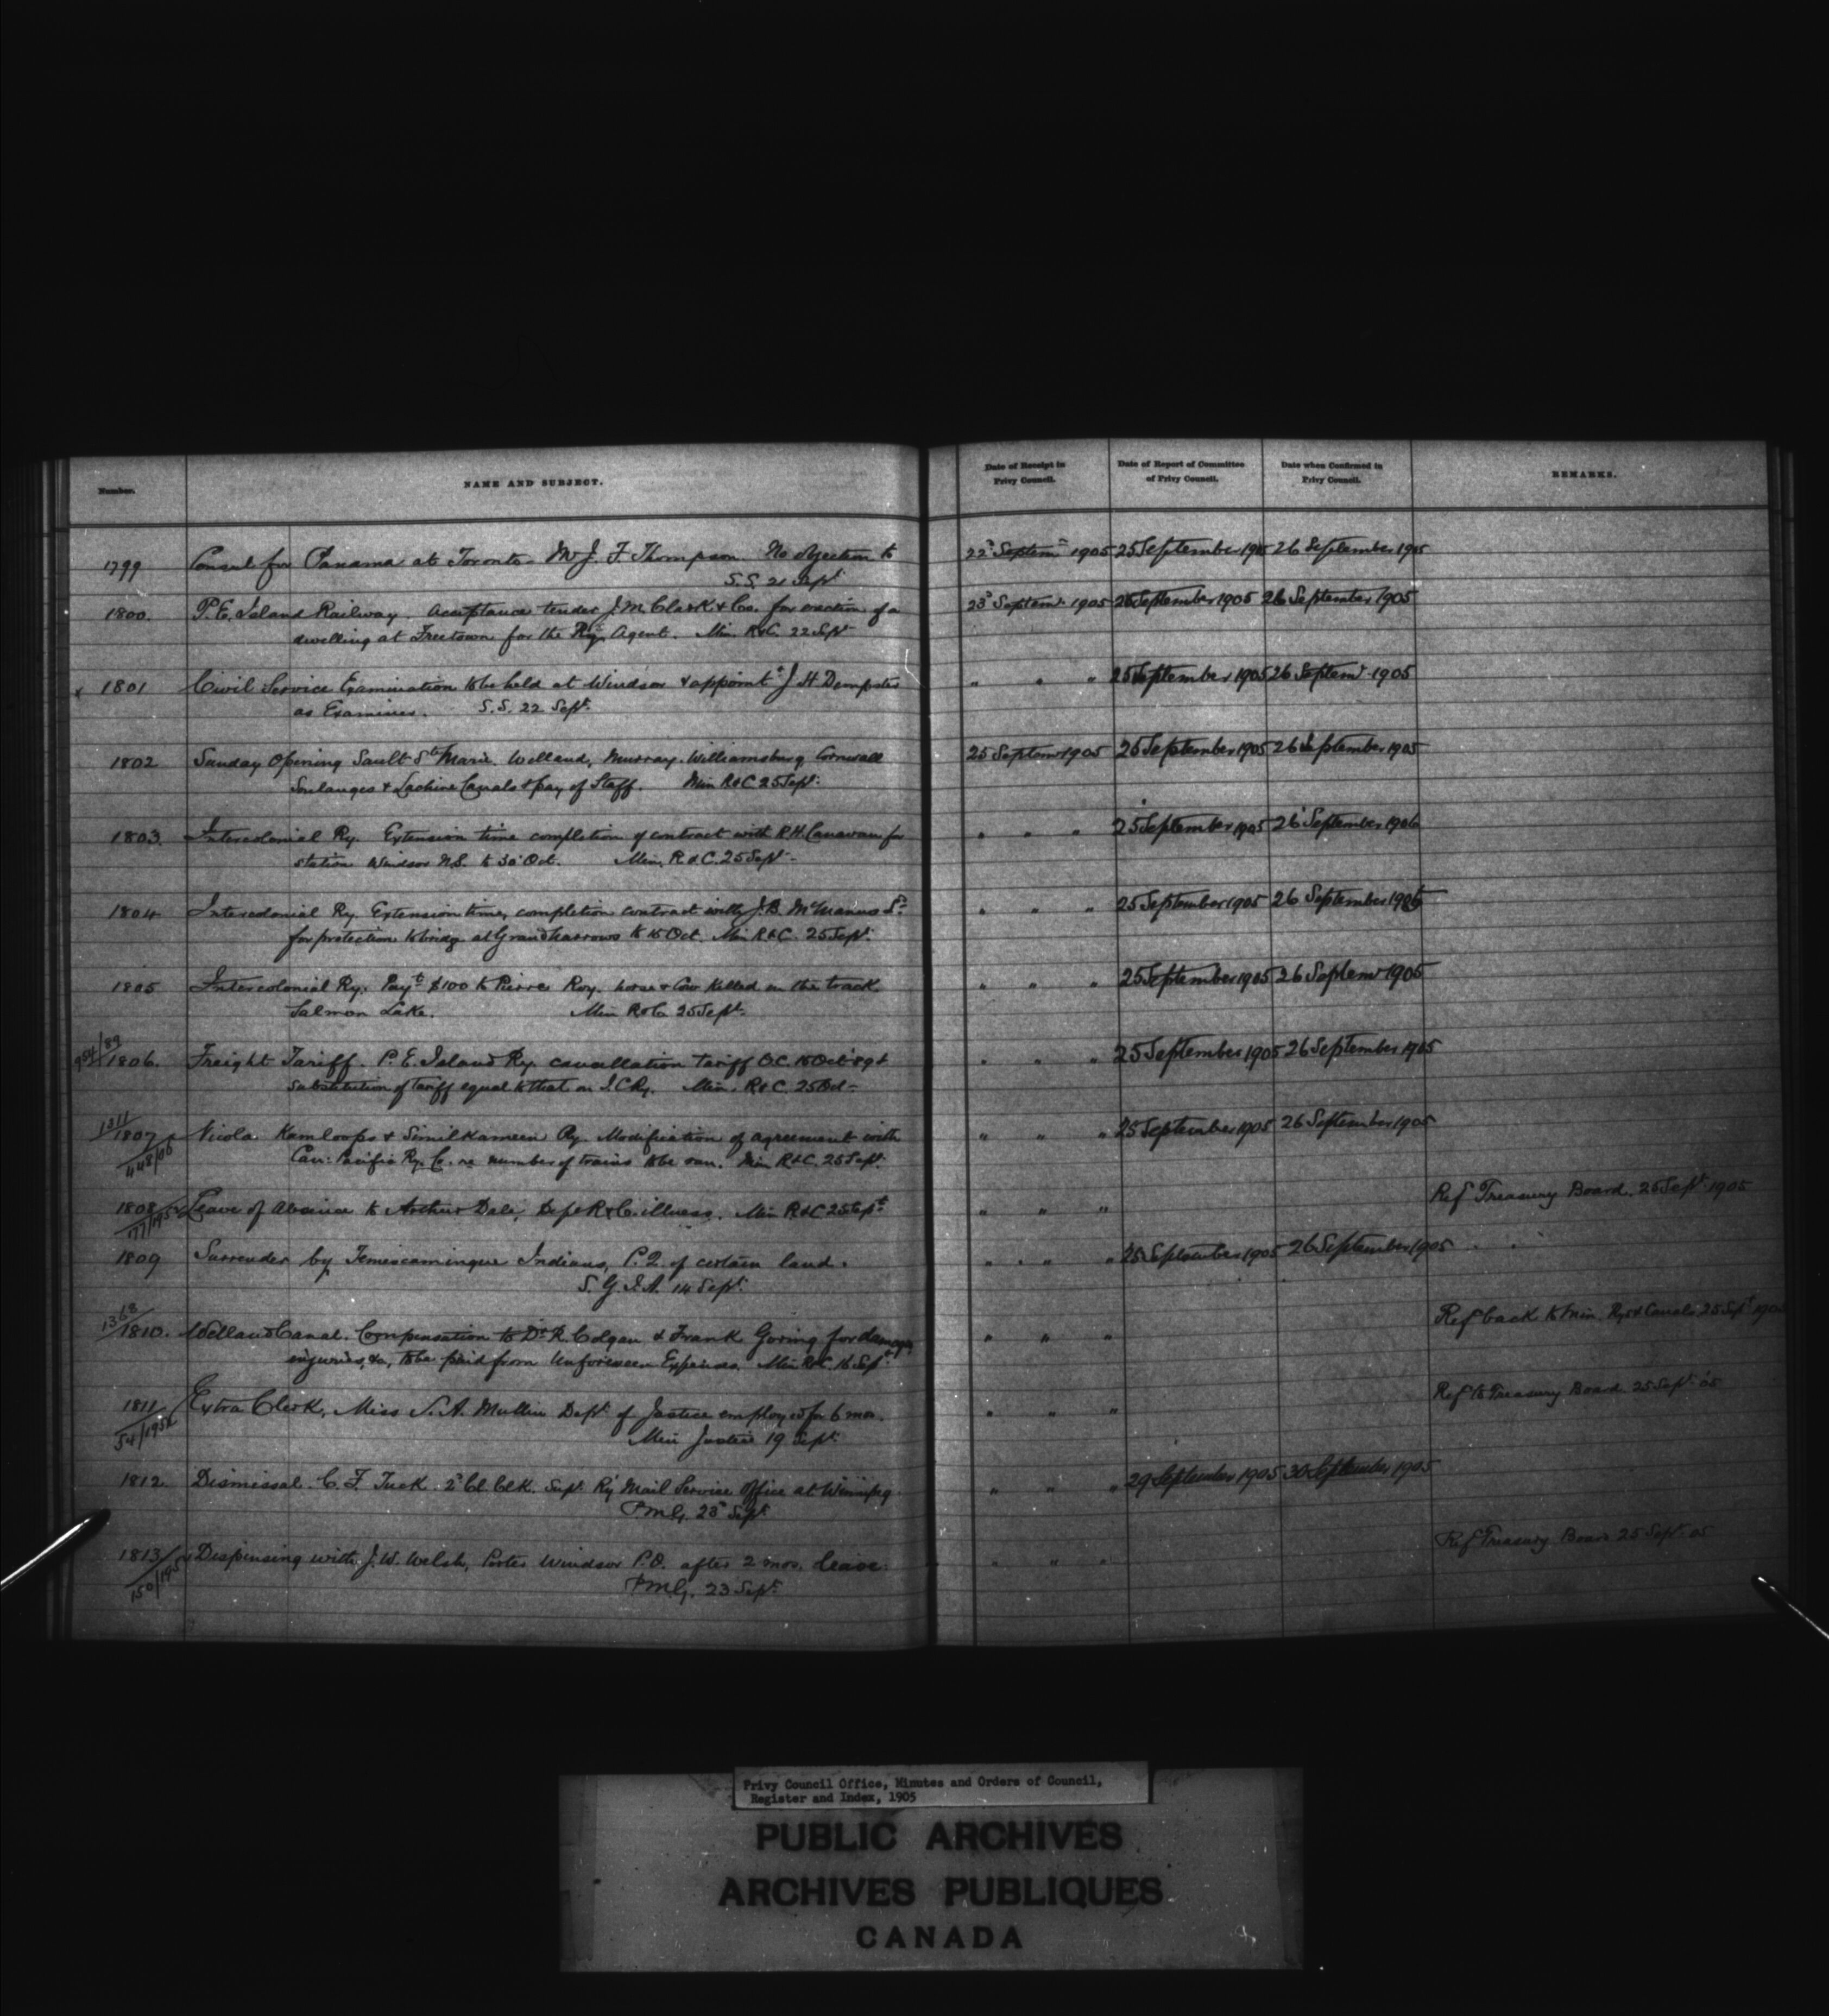 Number.
NAME AND SUBJECT.
Date of Receipt in Privy Council.
Date of Report of Committee of Privy Council.
Date when Confirmed in Privy Council.
REMARKS.
1799 Consul for Panama at Toronto Mr J. F. Thompson No objection to 22d Septemr 1905 25 September 1905 26 September 1905
S.S. 21 Sept
1800. P. E. Island Railway. Acceptance tender J. M. Clark & Co. for erection of a 23d Septemr 1905 25 September 1905 26 September 1905
dwelling at Freetown for the Ry Agent. Min. R&C. 22 Sept
x 1801 Civil Service Examination to be held at Windsor & appointt J H Dempster " " " 25 September 1905 26 Septemr 1905
as Examiner. S.S. 22 Sept.
1802 Sunday Opening Sault Ste Marie. Welland, Murray. Williamsburg Cornwall 25 Septemr 1905 25 September 1905 26 September 1905
Soulanges & Lachine Canals & pay of Staff. Min R&C 25 Sept.
1803. Intercolonial Ry. Extension time completion of contract with R. H. Canavan for " " " 25 September 1905 26 September 1906
station Windsor N.S. to 30 Oct. Min. R & C. 25 Sept
1804 Intercolonial Ry. Extension time, completion contract with J. B. McManus " " " 25 September 1905 26 September 1905
for protection to bridge at Grand Narrows to 15 Oct. Min R & C. 25 Sept.
1805 Intercolonial Ry. Payt $100 to Pierre Roy. horse & Cow killed on the track " " " 25 September 1905 26 Septemr 1905
Salmon Lake. Min R&C 25 Sept.
954/89 1806. Freight Tariff. P. E. Island Ry. cancellation Tariff O.C. 15 Oct 89 & " " " 25 September 1905 26 September 1905
substitution of tariff equal to that on I. C Ry. Min. R & C. 25 Oct
1311 1807 Nicola Kamloops & Similkameen Ry. Modification of agreement with " " " 25 September 1905 26 September 1905
448/06 Can: Pacific Ry. Co. re number of trains to be run. Min R & C. 25 Sept.
1808 Leave of Absence to Arthur Dale, Dept R & C. illness. Min R & C 25 Sept " " " Ref Treasury Board. 25 Sept. 1905
1809 Surrender by Temiscamingue Indians, P.Q. of certain land. " " " 25 September 1905 26 September 1905
S. G. I. A. 14 Sept.
1368 1810. Welland Canal. Compensation to Dr R. Colgan & Frank Goring for damages " " " Ref back to Min Rys & Canals 25 Sept 1905
injuries, &c, to be paid from Unforeseen Expenses. Min R & C. 16 Sept
1811 Extra Clerk, Miss S. A. Mullin Dept of Justice employed for 6 mos. " " " Ref to Treasury Board 25 Sept. 05
Min Justice 19 Sept.
1812. Dismissal. C. F. Tuck 2d Cl. Clk. Supt. Ry Mail Service Office at Winnipeg " " " 29 September 1905 30 September 1905
P.M.G. 23d Sept
1813 Dispensing with J. W. Welsh, Porter Windsor P.O. after 2 mos. leave " " " Ref Treasury Board 25 Sept. 05
P.M.G. 23 Sept.
Privy Council Office, Minutes and Orders of Council,
Register and Index, 1905
PUBLIC ARCHIVES
ARCHIVES PUBLIQUES
CANADA